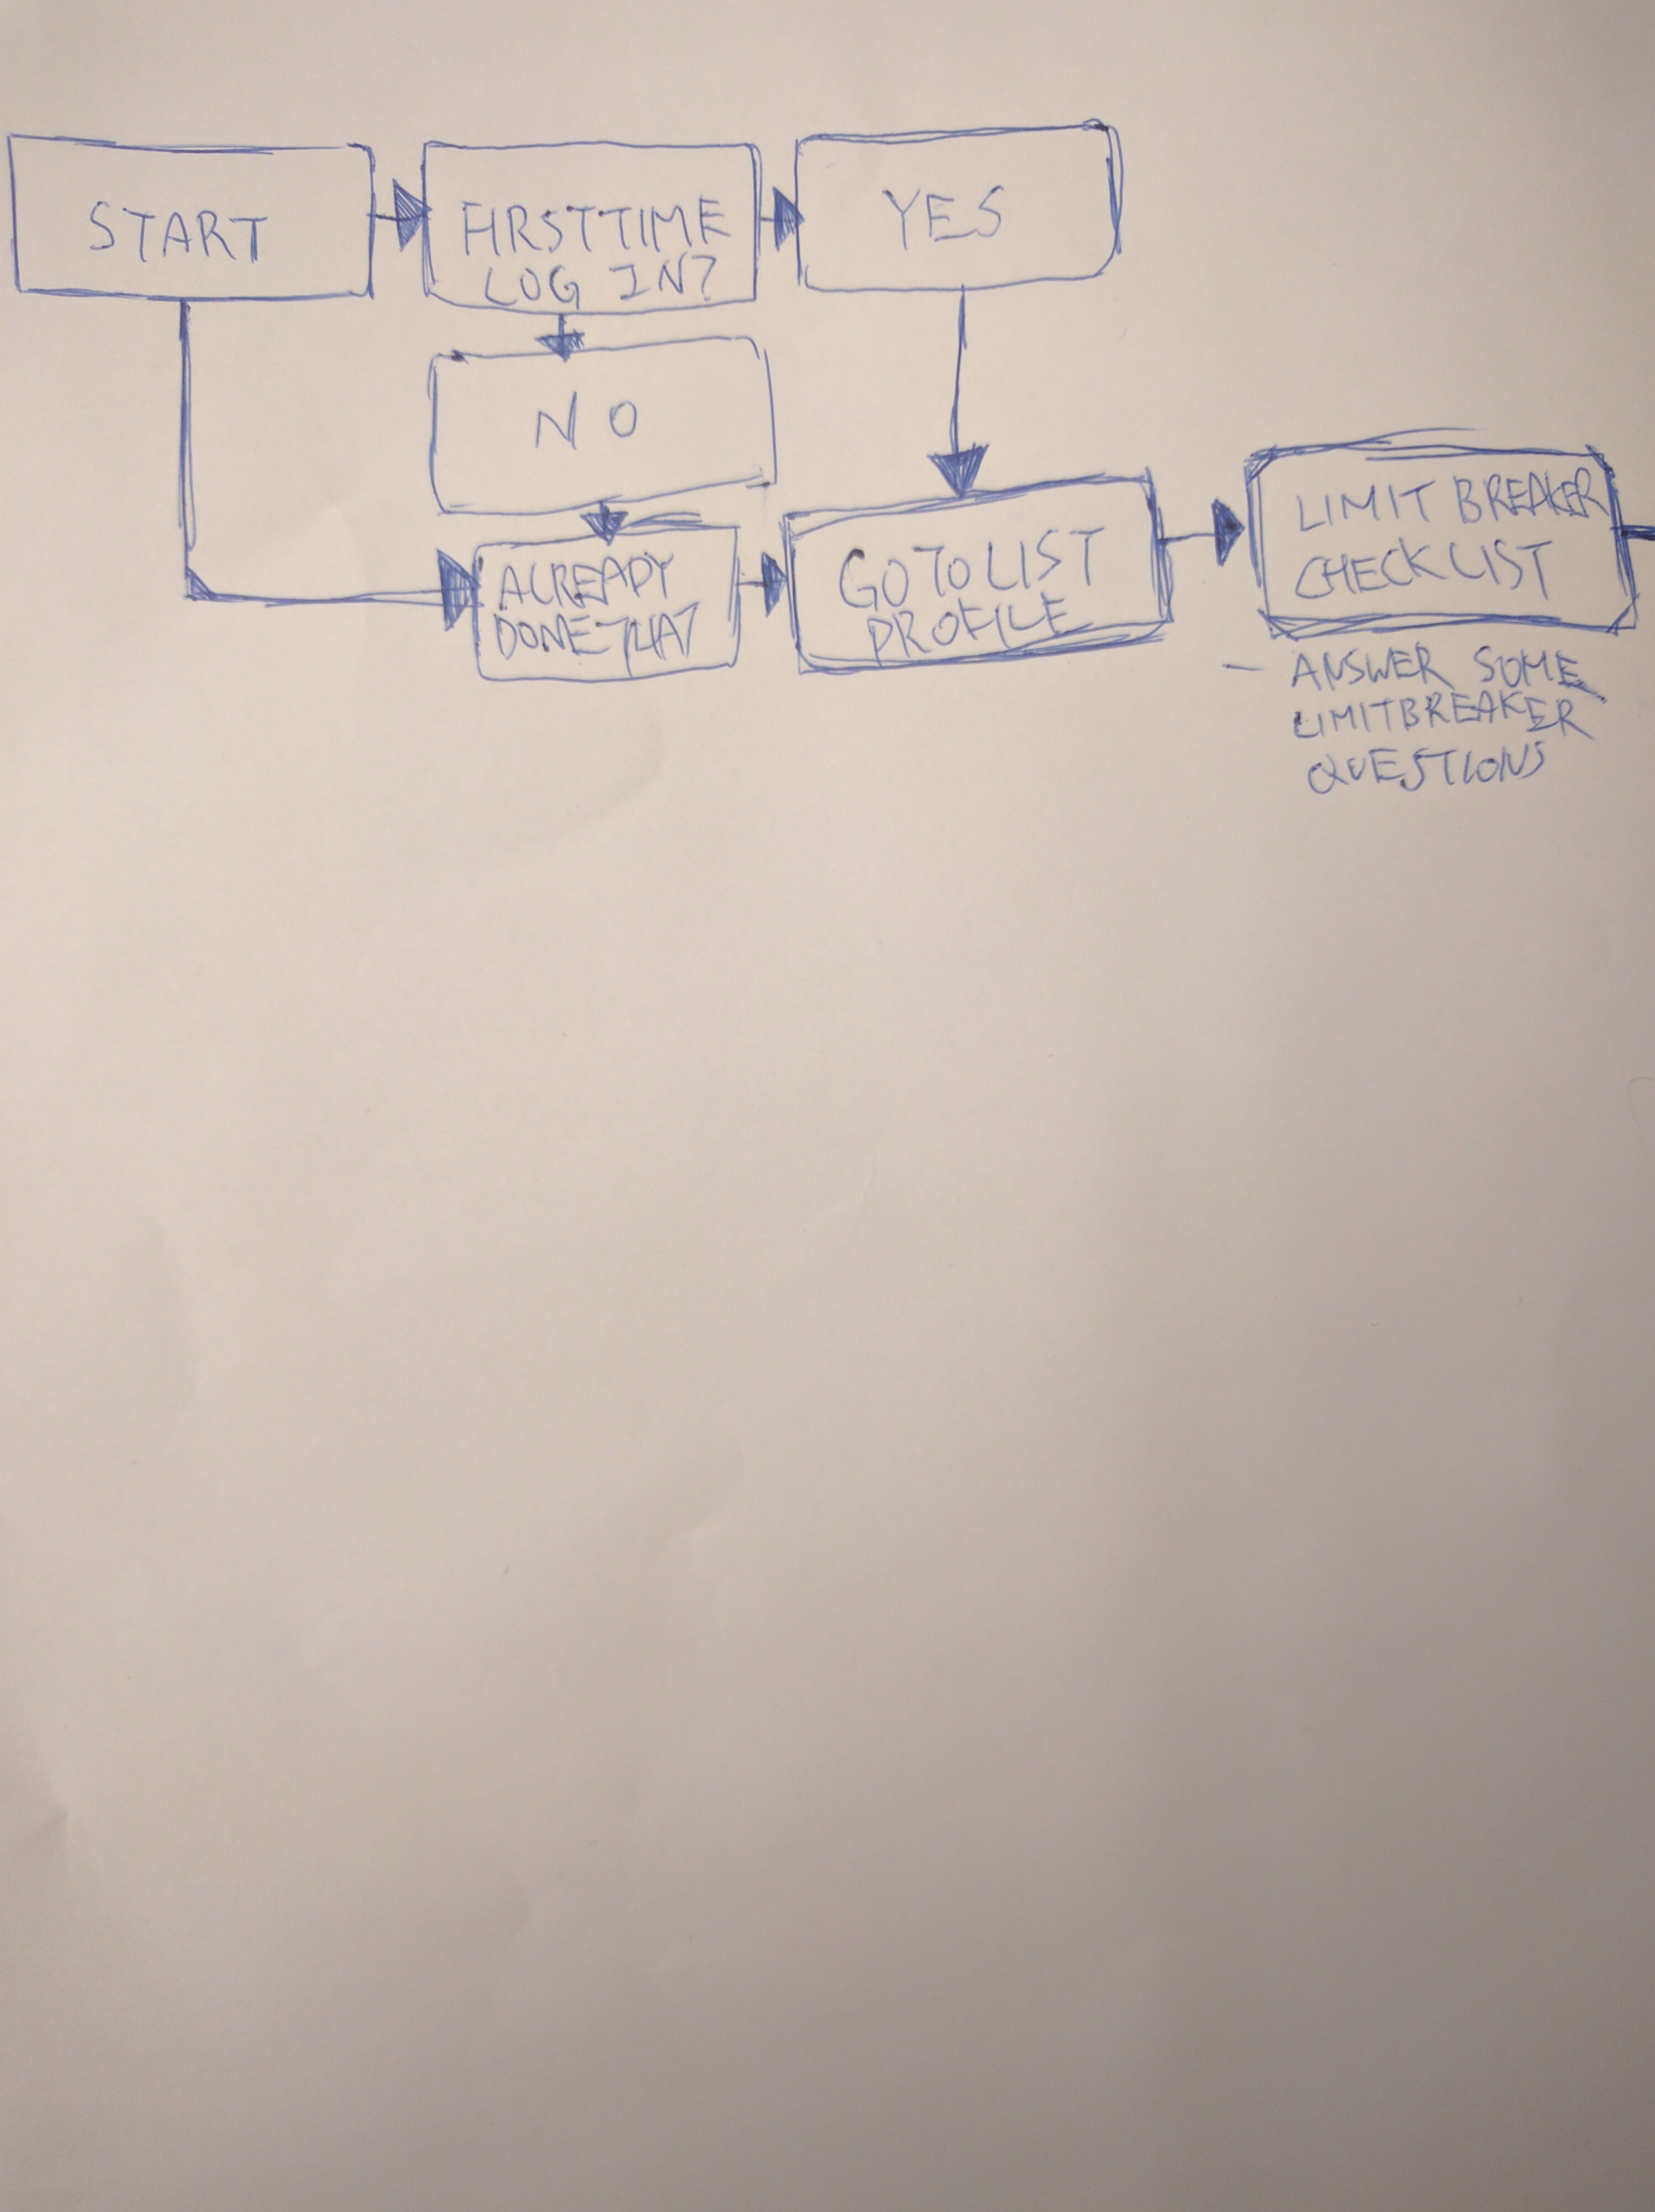 START
FIRST TIME
LOG IN?
YES
NO
ALREADY
DONE THAT
GO TO LIST
PROFILE
LIMIT BREAKER
CHECKLIST
- ANSWER SOME
LIMITBREAKER
QUESTIONS